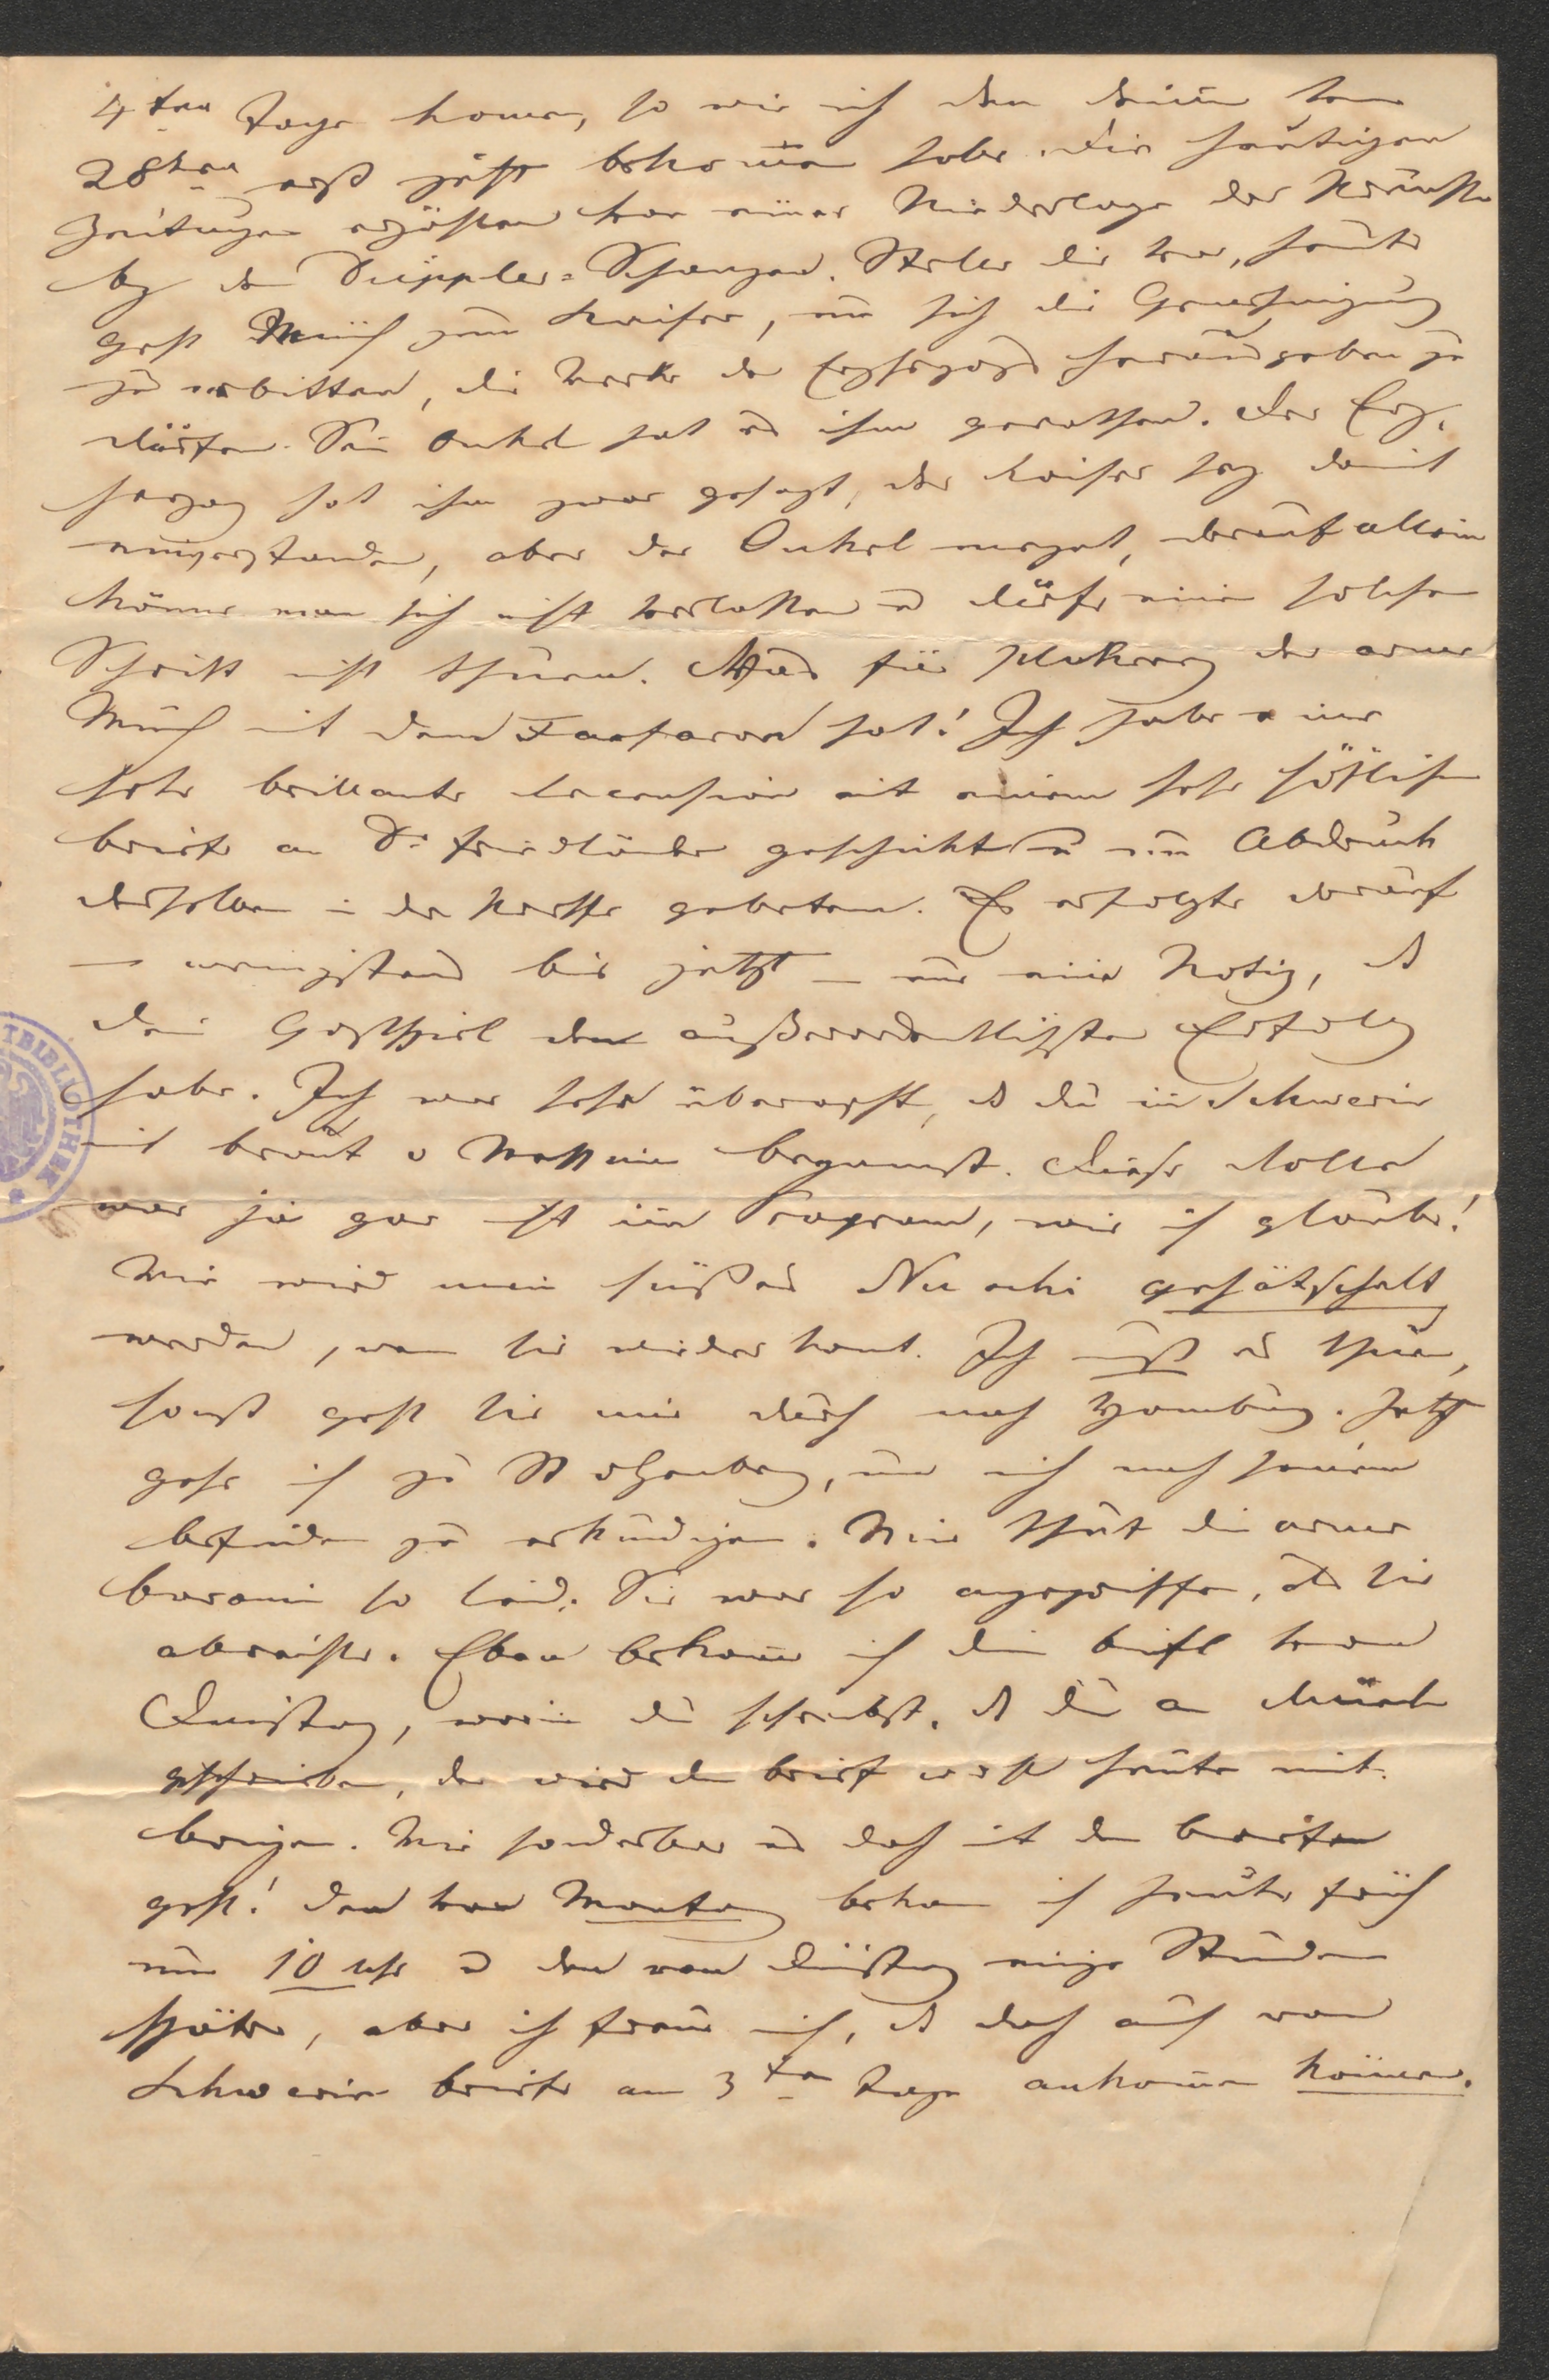 4ten Tage komen, so wie ich den deinen vom
28ten erst jetzt bekomen habe. Die heutigen
Zeitungen erzählen von einer Niederlage der Preußen
bey den Düppler-Schanzen. Stelle dir vor, heute
geht Münch zum Kaiser, um sich die Genehmigung
zu erbitten, die Werke des Erzherzogs herausgeben zu
dürfen. Sein Onkel hat es ihm gerathen. Der Erz-
herzog hat ihm zwar gesagt, der Kaiser sey damit
einverstanden, aber der Onkel meynt, darauf allein
könne man sich nicht verlassen u dürfe einen solchen
Schritt nicht thuen. Was für Plakerey der arme
Münch mit dem hat! Ich habe eine
sehr brillante Recension mit einem sehr höflichen
Briefe an Dr Friedländer geschickt u um Abdruck
derselben in der Presse gebeten. Es erfolgte darauf
– wenigstens bis jetzt – nur eine Notiz, dß
dein Gastspiel den außerordentlichsten Erfolg
habe. Ich war sehr überrascht, dß du in Schwerin
mit Braut v Messina begannst. Diese Rolle
war ja gar nicht im Program, wie ich glaube!
Wie wird mein süßes gehätschelt
werden, wen sie wieder komt. Ich muß es thuen,
sonst geht sie mir durch nach Hamburg. Jetzt
gehe ich zu , um mich nach seinem
Befinden zu erkundigen. Mir thut die arme
Baronin so leid. Sie war so angegriffen, als sie
abreiste. Eben bekome ich dein Briefl von
Dienstag, worin du schreibst, dß du an Münch
geschrieben, der wird den Brief wohl heute mit-
bringen. Wie sonderbar es doch mit den Briefen
geht! Den von Montag bekam ich heute früh
um 10 Uhr u den von Dienstag einige Stunden
später, aber ich freue mich, dß doch auch von
Schwerin Briefe am 3ten Tage ankomen können.